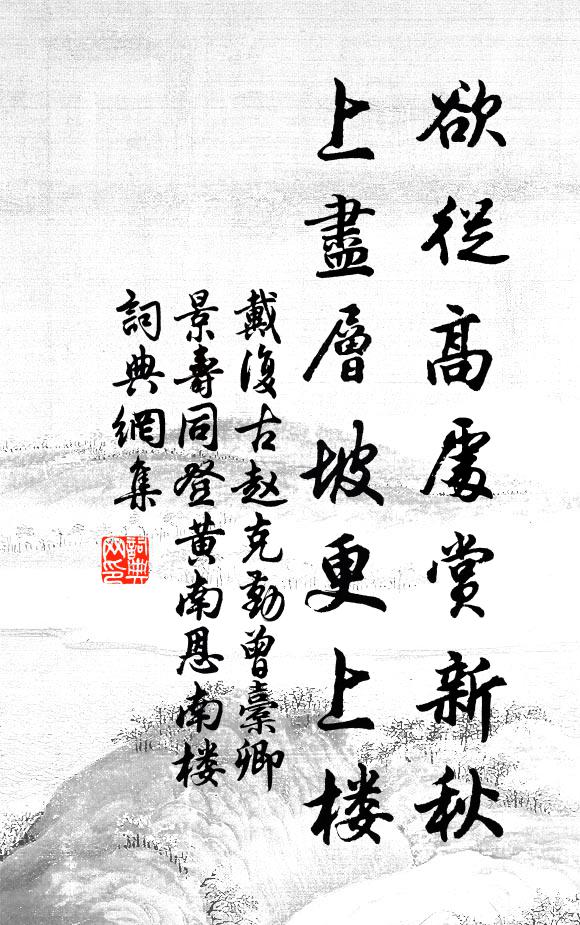 欲從高處賞新秋
上盡層坡更上楼
戴復古赵克勤曾橐卿
景壽同登黄南恩南楼
詞典網集
詞典網印